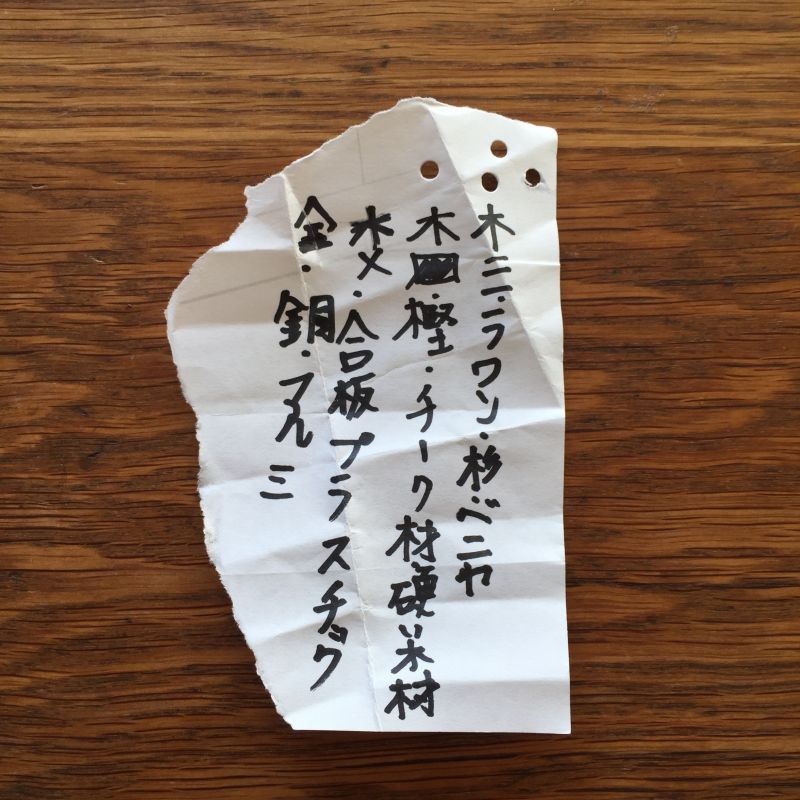 木ニ・ラワン・杉・ベニヤ
木皿樫・チーク材・硬い木材
木メ・合板プラスチック
金・銅・アルミ